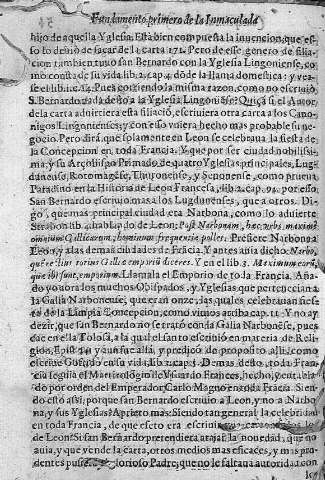 Fundamento primero de la Inmaculada
hijo de aquella Yglesia. Està bien compuesta la inuencion, que es-
so lo deuio de sacar de la carta 174. Pero de esse genero de filia-
cion tambien tuuo san Bernardo con la Yglesia Lingoniense, co
mo consta de su vida lib. 2. cap. 4. dõde la llama domestica: y vea-
se el lib. 1. c. 14. Pues corriendo la misma razon, como no escriuiò
S. Bernardo nada desto à la Yglesia Lingoniẽse? Quiçà si el Autor
de la carta aduirtiera esta filiaciõ, escriuiera otra carta a los Cano-
nigos Lingonienses; y con esso vuiera hecho mas probable su ne-
gocio. Pero dirà, que solamente en Leon se celebraua la fiesta de
la Concepcion en toda Francia. Y que por ser ciudad nobilissi-
ma, y su Arçobispo Primado de quatro Yglesias principales, Lug-
dunense, Rotomagẽse, Turonense, y Senonense, como prueua
Paradino en la Historia de Leon Francesa, lib. 2. cap. 94. por esso
San Bernardo escriuio mas a los Lugdunenses, que a otros. Di-
go, que mas principal ciudad era Narbona, como lo aduierte
Strabon lib. 4. hablando de Leon: Post Narbonam, hæc urbs maximè
omnium Gallicarum, hominum frequentia pollet. Prefiere Narbona a
Leon, y a las demas ciudades de Frãcia. Y antes auia dicho: Narbo,
quæ &
que ibi sunt, emporium. Llamala el Emporio de toda Francia. Aña-
do yo aora los muchos Obispados, y Yglesias que pertenecian a
la Galia Narbonense, que eran onze, las quales celebrauan fies-
ta de la Limpia Concepcion, como vimos arriba cap. 11. Y no ay
dezir, que san Bernardo no se tratò con da Galia Narbonẽse, pues
cae en ella Tolosa, a la qual el santo escriuiò en materia de Re-
ligion, Epist. 241. y aun fue allà, y predicò de proposito alli, como
escriue Gofrido en su vida lib. 3. cap. 5. Demas desto, toda Fran-
cia seguia el Martirologio de Vsuardo Frances, hecho, y estable-
do por orden del Emperador Carlo Magno en toda Frãcia. Sien-
do esto assi, porque san Bernardo escriuio a Leon, y no a Narbo-
na, y sus Yglesias? Aprieto mas. Siendo tan general la celebridad
en toda Francia, de que esto era escriuir
de Leon? Si san Bernardo pretendiera atajar la nouedad, que no
auia, y que vende la carta, otros medios mas eficaces, y mas pro-
dentes puso glorioso Padre, que no le faltaua autoridad con